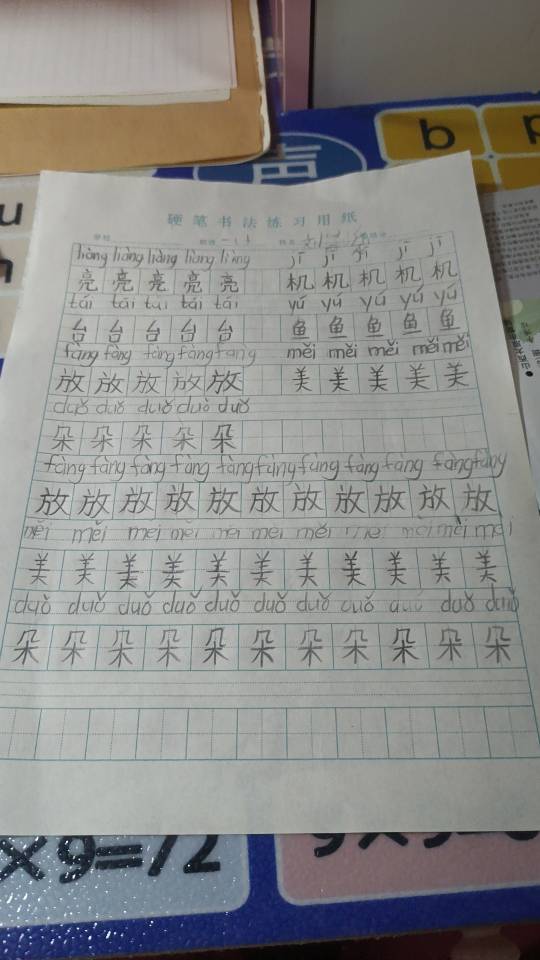 声
b
p
u
硬笔书法练习用纸
liàng liàng liàng liàng liàng jī jī jī jī jī
亮 亮 亮 亮 亮 机 机 机 机 机
tái tái tái tái tái yú yú yú yú yú
台 台 台 台 台 鱼 鱼 鱼 鱼 鱼
fàng fàng fàng fàng fàng měi měi měi měi měi
放 放 放 放 放 美 美 美 美 美
duǒ duǒ duǒ duǒ duǒ
朵 朵 朵 朵 朵
fàng fàng fàng fàng fàng fàng fàng fàng fàng fàng fàng
放 放 放 放 放 放 放 放 放 放 放
měi měi měi měi měi měi měi
美 美 美 美 美 美 美 美 美 美 美
duǒ duǒ duǒ duǒ duǒ duǒ duǒ duǒ duǒ duǒ
朵 朵 朵 朵 朵 朵 朵 朵 朵 朵 朵
×9=72